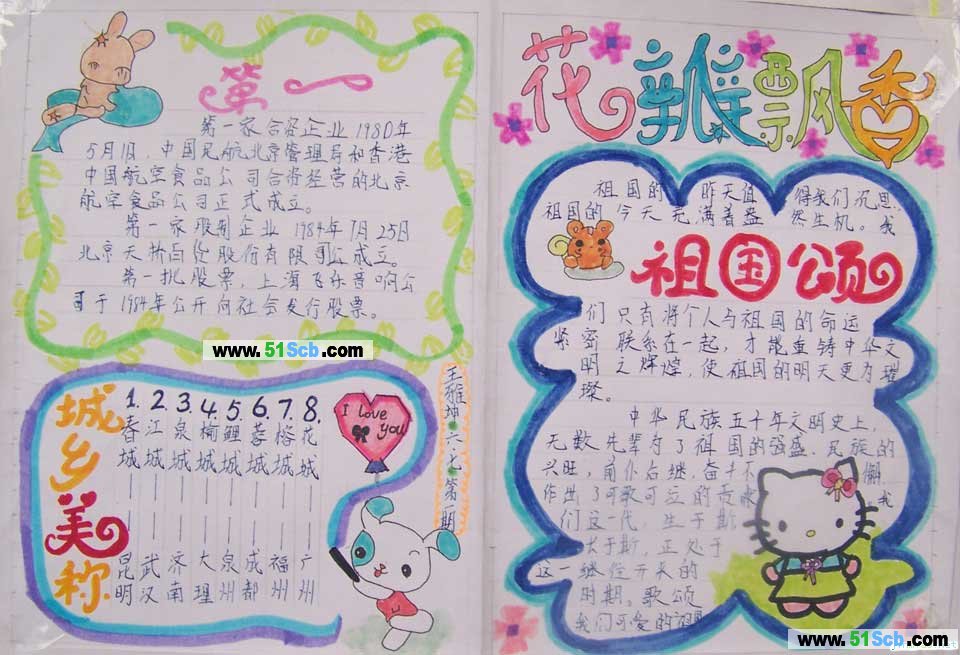 第一
第一家合资企业 1980年
5月1日，中国民航北京管理局和香港
中国航空食品公司合资经营的北京
航空食品公司正式成立。
第一家股制企业 1984年7月25日
北京天桥百货股份有限司公成立。
第一批股票，上海飞乐音响公
司于1984年公开向社会发行股票。
www.51Scb.com
城乡美称
1. 春城——昆明
2. 江城——武汉
3. 泉城——济南
4. 榆城——大理
5. 鲤城——泉州
6. 蓉城——成都
7. 榕城——福州
8. 花城——广州
I love
you
王雅坤 六.元 第一期
花瓣飘香
祖国的 昨天值 得我们沉思
祖国的今天充满着盎 然生机。我
祖国颂
们 只有将个人与祖国的命运
紧密 联系在一起，才能重铸中华文
明之辉煌，使祖国的明天更为璀
璨。
中华民族五千年文明史上，
无数先辈为了祖国的强盛、民族的
兴旺，前仆后继，奋斗不 懈
作出了可歌可泣的贡献 。我
们这一代，生于斯
长于斯，正处于
这一继往开来的
时期。歌颂
我们可爱的祖国
www.51Scb.com